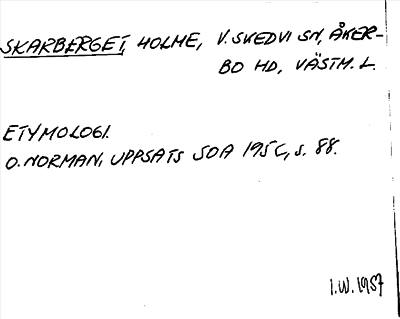 SKARBERGET, HOLME, V. SKEDVI SN, ÅKER-
BO HD, VÄSTM. L.
ETYMOLOGI.
O. NORMAN, UPPSATS SOA 195C, s. 88.
I.W. 1957